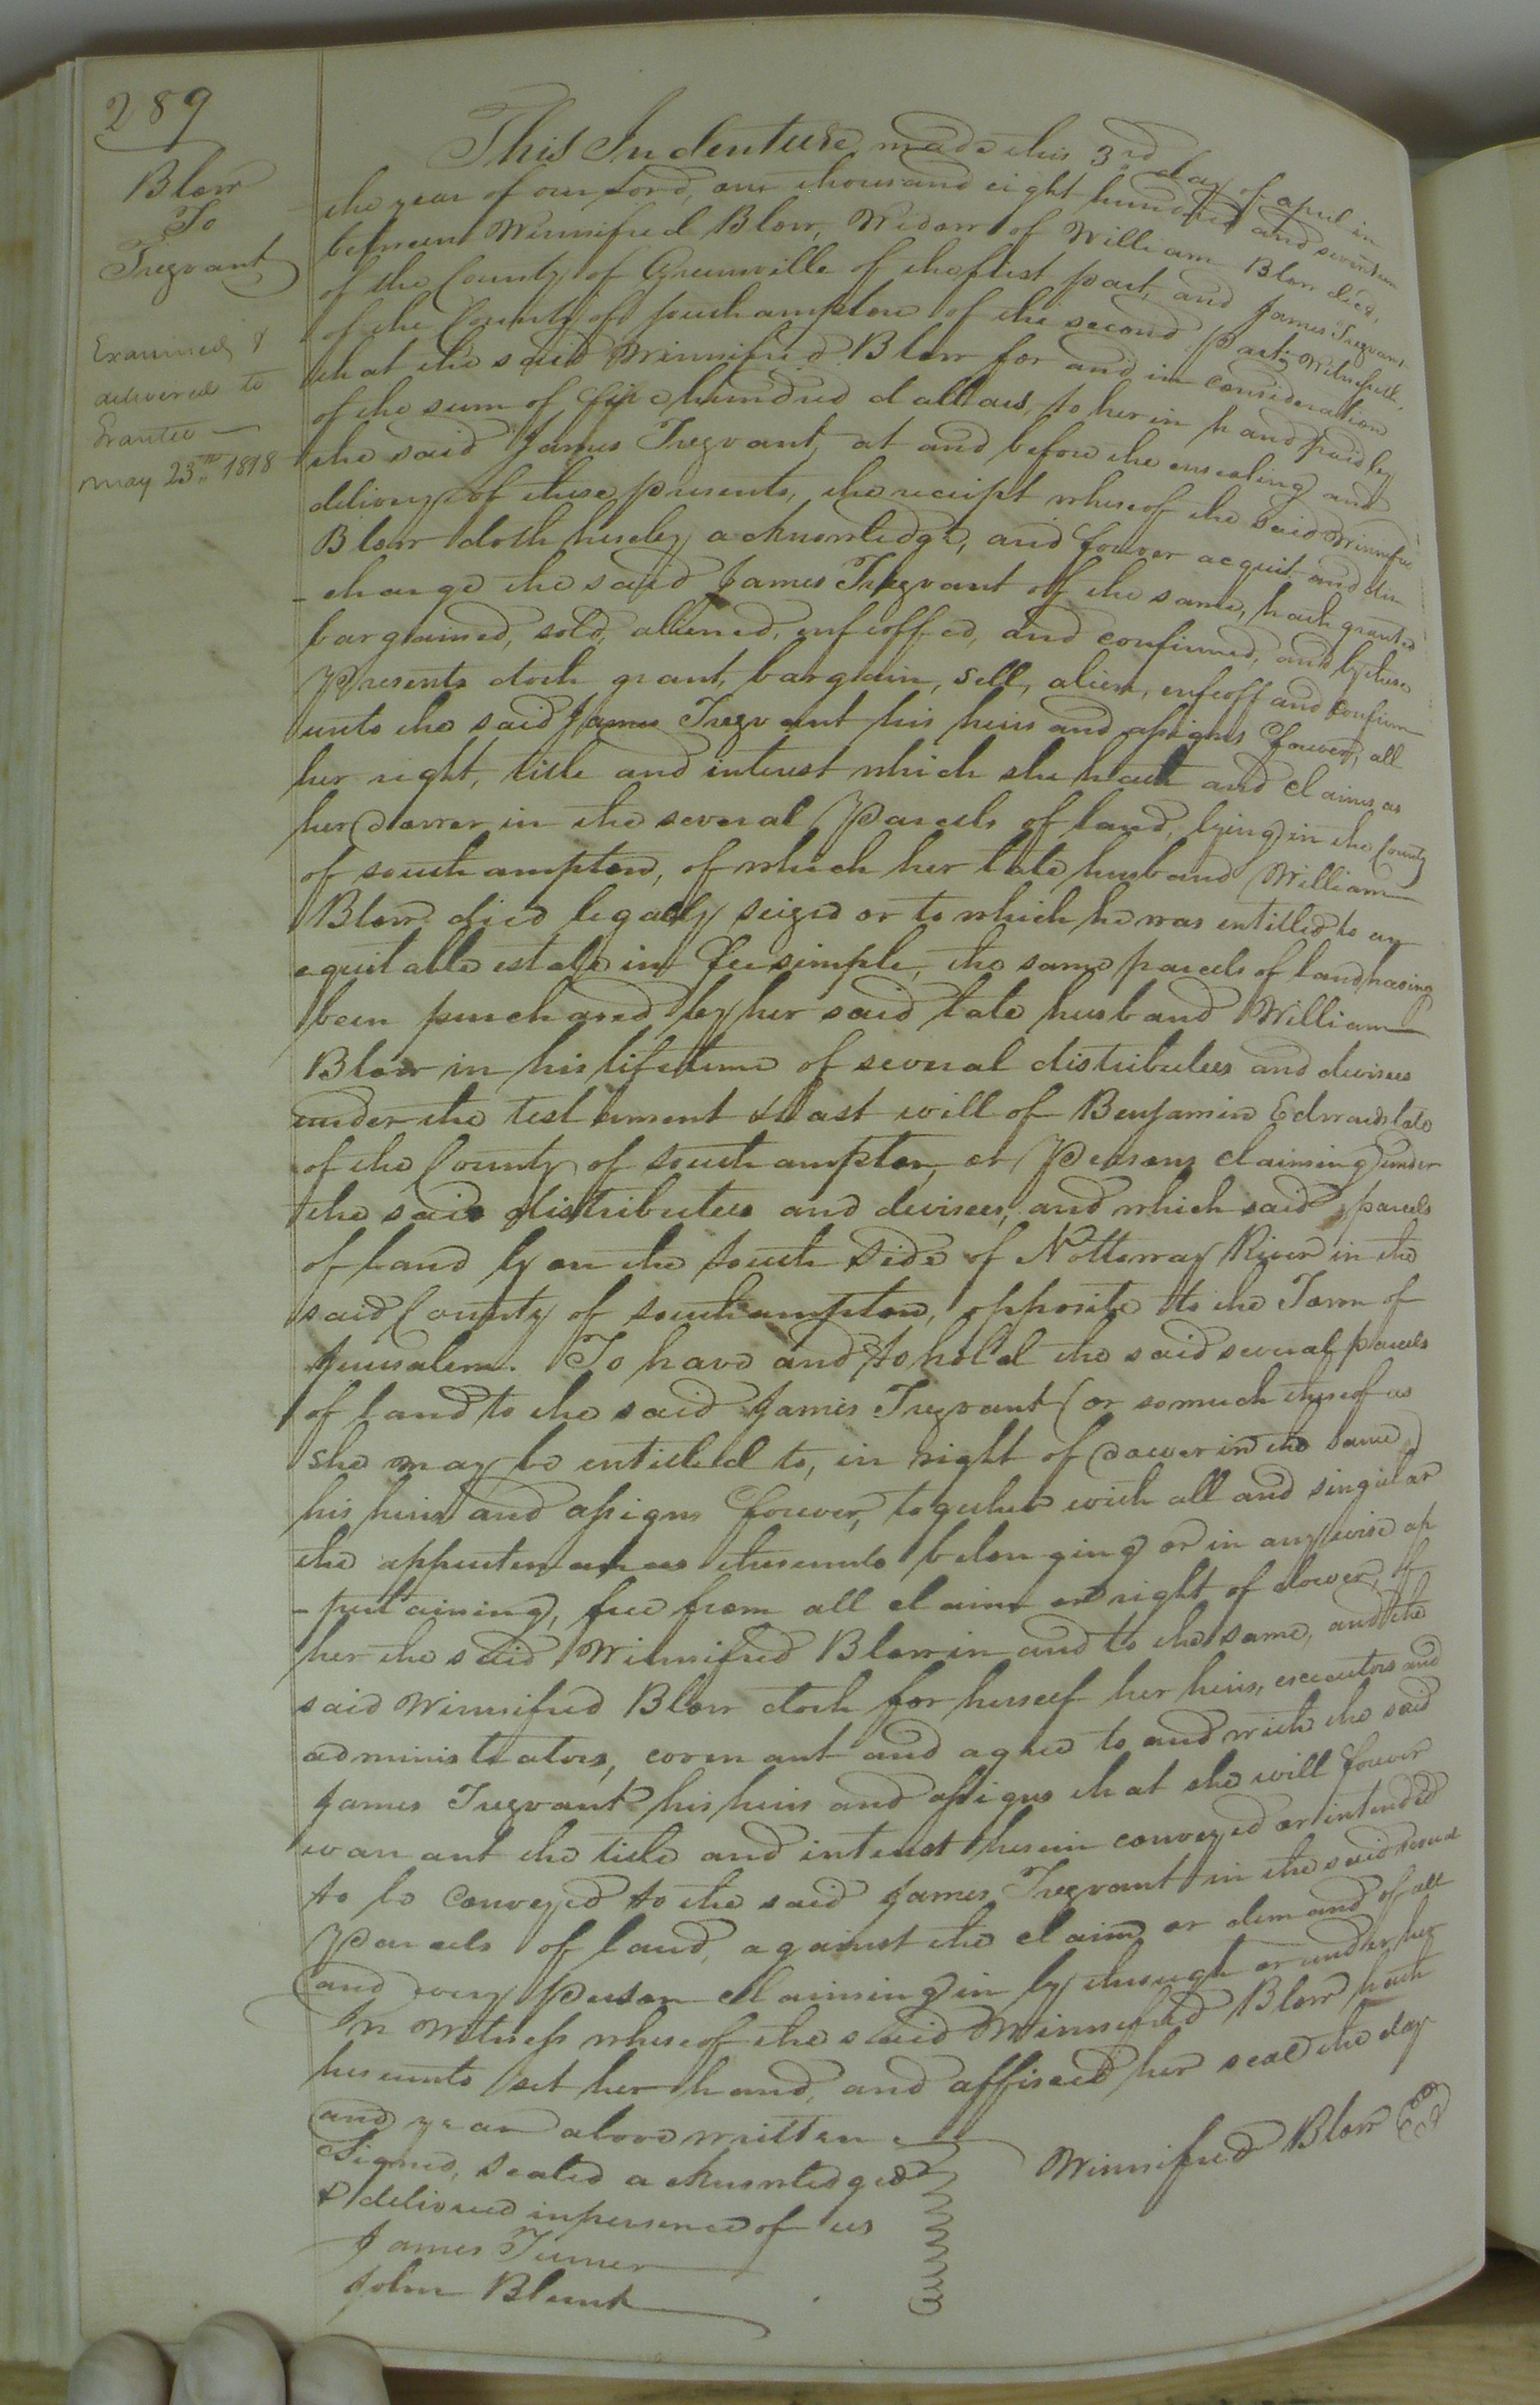 289
Blow
To
Trezvant
Examined &
delivered to
Grantee —
may 23rd 1818
This Indenture made this 3rd day of april in
the year of our Lord, one thousand eight hundred and seventeen
between Winnifred Blow, Widow of William Blow decd.
of the County of Greensville of the first part, and James Trezvant
of the County of Southampton of the second part; Witnesseth,
that the said Winnifred Blow for and in consideration
of the sum of five hundred dollars, to her in hand paid by
the said James Trezvant, at and before the ensealing and
delivery of these presents, the receipt whereof the said Winnifred
Blow doth hereby acknowledge, and forever acquit and dis
- charge the said James Trezvant of the same, hath granted
bargained, sold, aliened, enfeoffed, and confirmed, and by these
Presents doth grant, bargain, sell, alien, enfeoff and confirm
unto the said James Trezvant his heirs and assigns forever, all
her right, title and interest which she hath and claims as
her dower in the several Parcels of land, lying in the County
of southampton, of which her late husband William
Blow died legally seized or to which he was entitled to an
equitable estate in fee simple, the same parcels of land having
been purchased by her said late husband William
Blow in his lifetime of several distributees and devisees
under the testament & last will of Benjamin Edwards late
of the County of southampton, or Persons claiming under
the said distributees and devisees, and which said parcels
of land ly on the south side of Nottoway River in the
said County of southampton, opposite to the Town of
Jerusalem. To have and to hold the said several parcels
of land to the said James Trezvant (or so much thereof as
she may be entitled to, in right of dower in the same)
his heirs and assigns forever, together with all and singular
the appurtenances thereunto belonging or in anywise ap
- pertaining, free from all claim or right of dower, of
her the said Winnifred Blow in and to the same, and the
said Winnifred Blow doth for herself her heirs, executors and
administrators, covenant and agree to and with the said
James Trezvant his heirs and assigns that she will forever
warrant the title and interest herein conveyed or intended
to be Conveyed to the said James Trezvant in the said several
Parcels of land, against the claim or demand of all
and every person claiming in by through or under her
In Witness whereof the said Winnifred Blow hath
hereunto set her hand, and affixed her seal the day
and year above written
Signed, sealed acknowledged
& delivered in presence of us
James Turner
John Blunt
Winnifred Blow